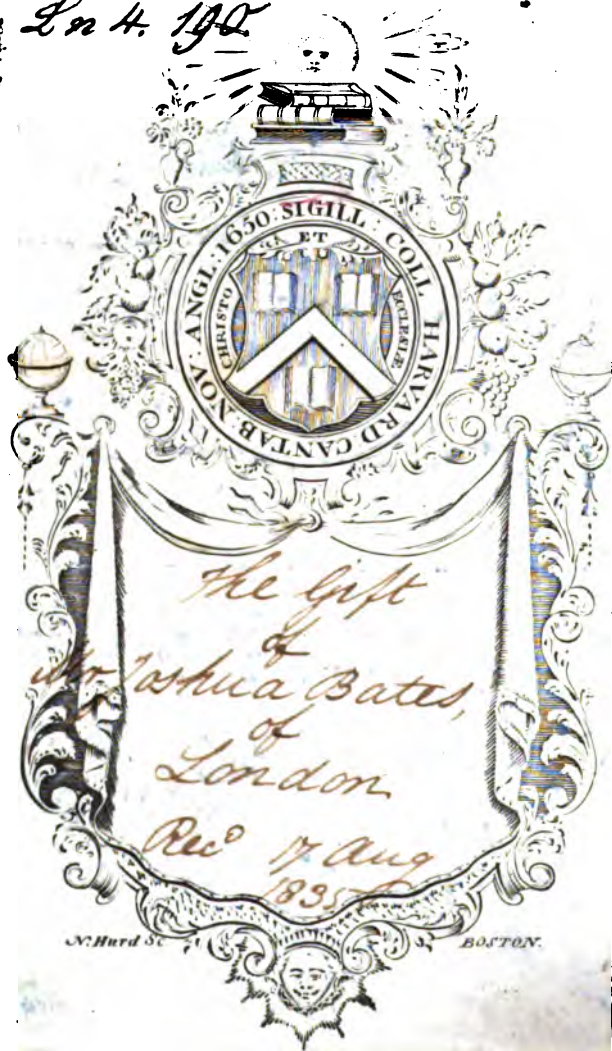 Ln 4. 190
SIGILL : COLL HARVARD CANTAB : NOV : ANGL : 1650 :
CHRISTO ET ECCLESIÆ
The Gift
of
Mr Joshua Bates,
of
London
Recd 17 Aug
1835
N. Hurd Sc
BOSTON.